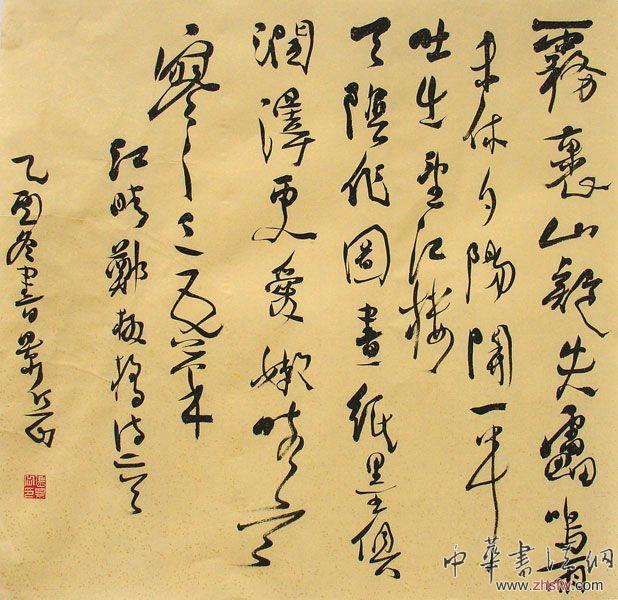 霧裹山疑失雷鳴雨
未休夕陽開一半
吐出望江樓
天陰作圖畫紙墨俱
潤澤更愛嫩晴天
寥〻三五筆
江晴鄭板橋詩二首
乙酉冬書
中華書法網
www.zhsfw.com